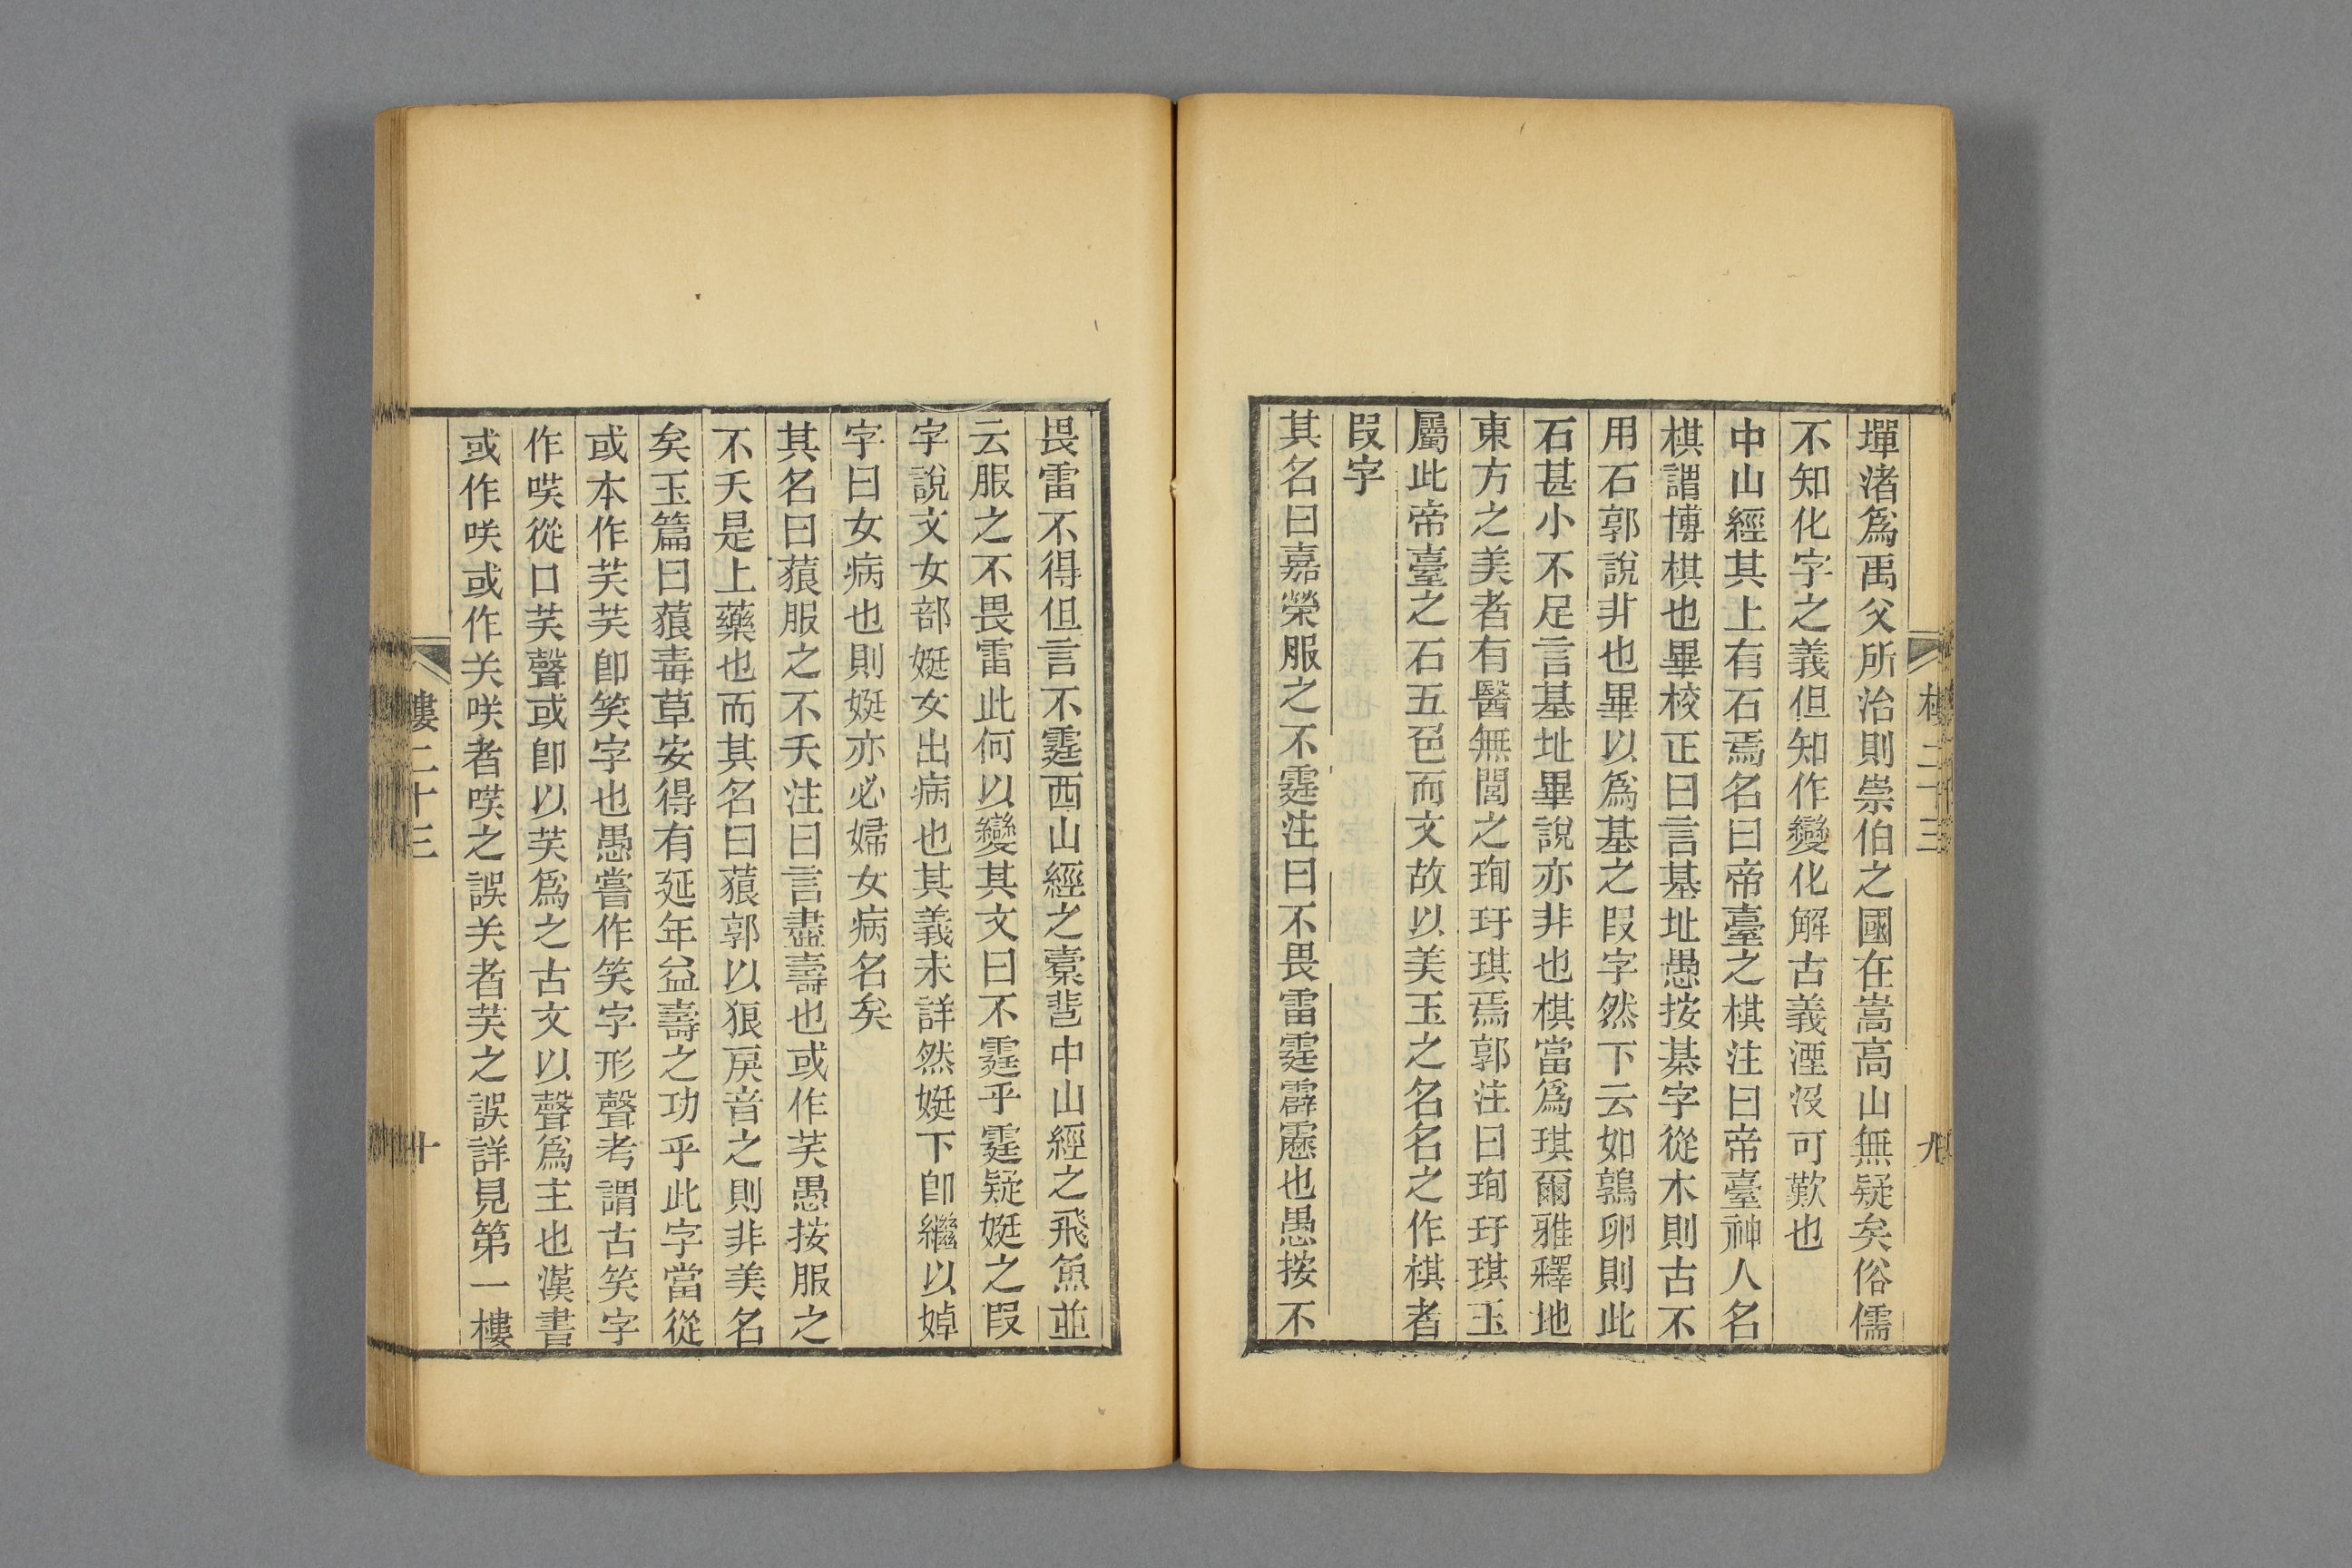 墠渚爲禹父所治則崇伯之國在嵩高山無疑矣俗儒
不知化字之義但知作變化解古義湮沒可歎也
中山經其上有石焉名曰帝臺之棋注曰帝臺神人名
棋謂博棋也畢校正曰言基址愚按棊字從木則古不
用石郭說非也畢以爲基之叚字然下云如鶉卵則此
石甚小不足言基址畢說亦非也棋當爲琪爾雅釋地
東方之美者有醫無閭之珣玗琪焉郭注曰珣玗琪玉
屬此帝臺之石五色而文故以美玉之名名之作棋者
叚字
其名曰嘉榮服之不霆注曰不畏雷霆霹靂也愚按不
畏雷不得但言不霆西山經之橐𩇯中山經之飛魚並
云服之不畏雷此何以變其文曰不霆乎霆疑娗之叚
字說文女部娗女出病也其義未詳然娗下卽繼以婥
字曰女病也則娗亦必婦女病名矣
其名曰蒗服之不夭注曰言盡壽也或作芺愚按服之
不夭是上藥也而其名曰蒗郭以狼戾音之則非美名
矣玉篇曰蒗毒草安得有延年益壽之功乎此字當從
或本作芺芺卽笑字也愚嘗作笑字形聲考謂古笑字
作㗛從口芺聲或卽以芺爲之古文以聲爲主也漢書
或作咲或作关咲者㗛之誤关者芺之誤詳見第一樓
樓二十三
十
二十三
九